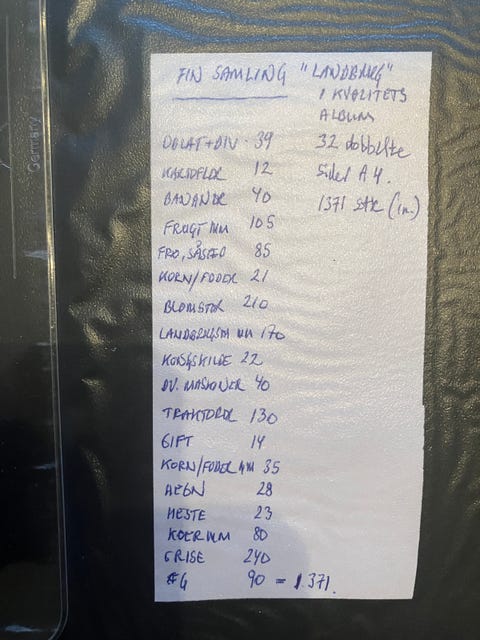 FIN SAMLING "LANDBRUG"
I KVALITETS
ALBUM
32 dobbelte
sider A4.
1371 stk (m)
OBLAT+DIV. 39
KARTOFLER 12
BANANER 40
FRUGT MM 105
FRØ, SÅSÆD 85
KORN/FODER 21
BLOMSTER 210
LANDBRUGSM MM 170
KONGSKILDE 22
DV. MASKINER 40
TRAKTORER 130
GIFT 14
KORN/FODER MM 35
HEGN 28
HESTE 23
KOER MM 80
GRISE 240
ÆG 90 = 1.371.
Germany